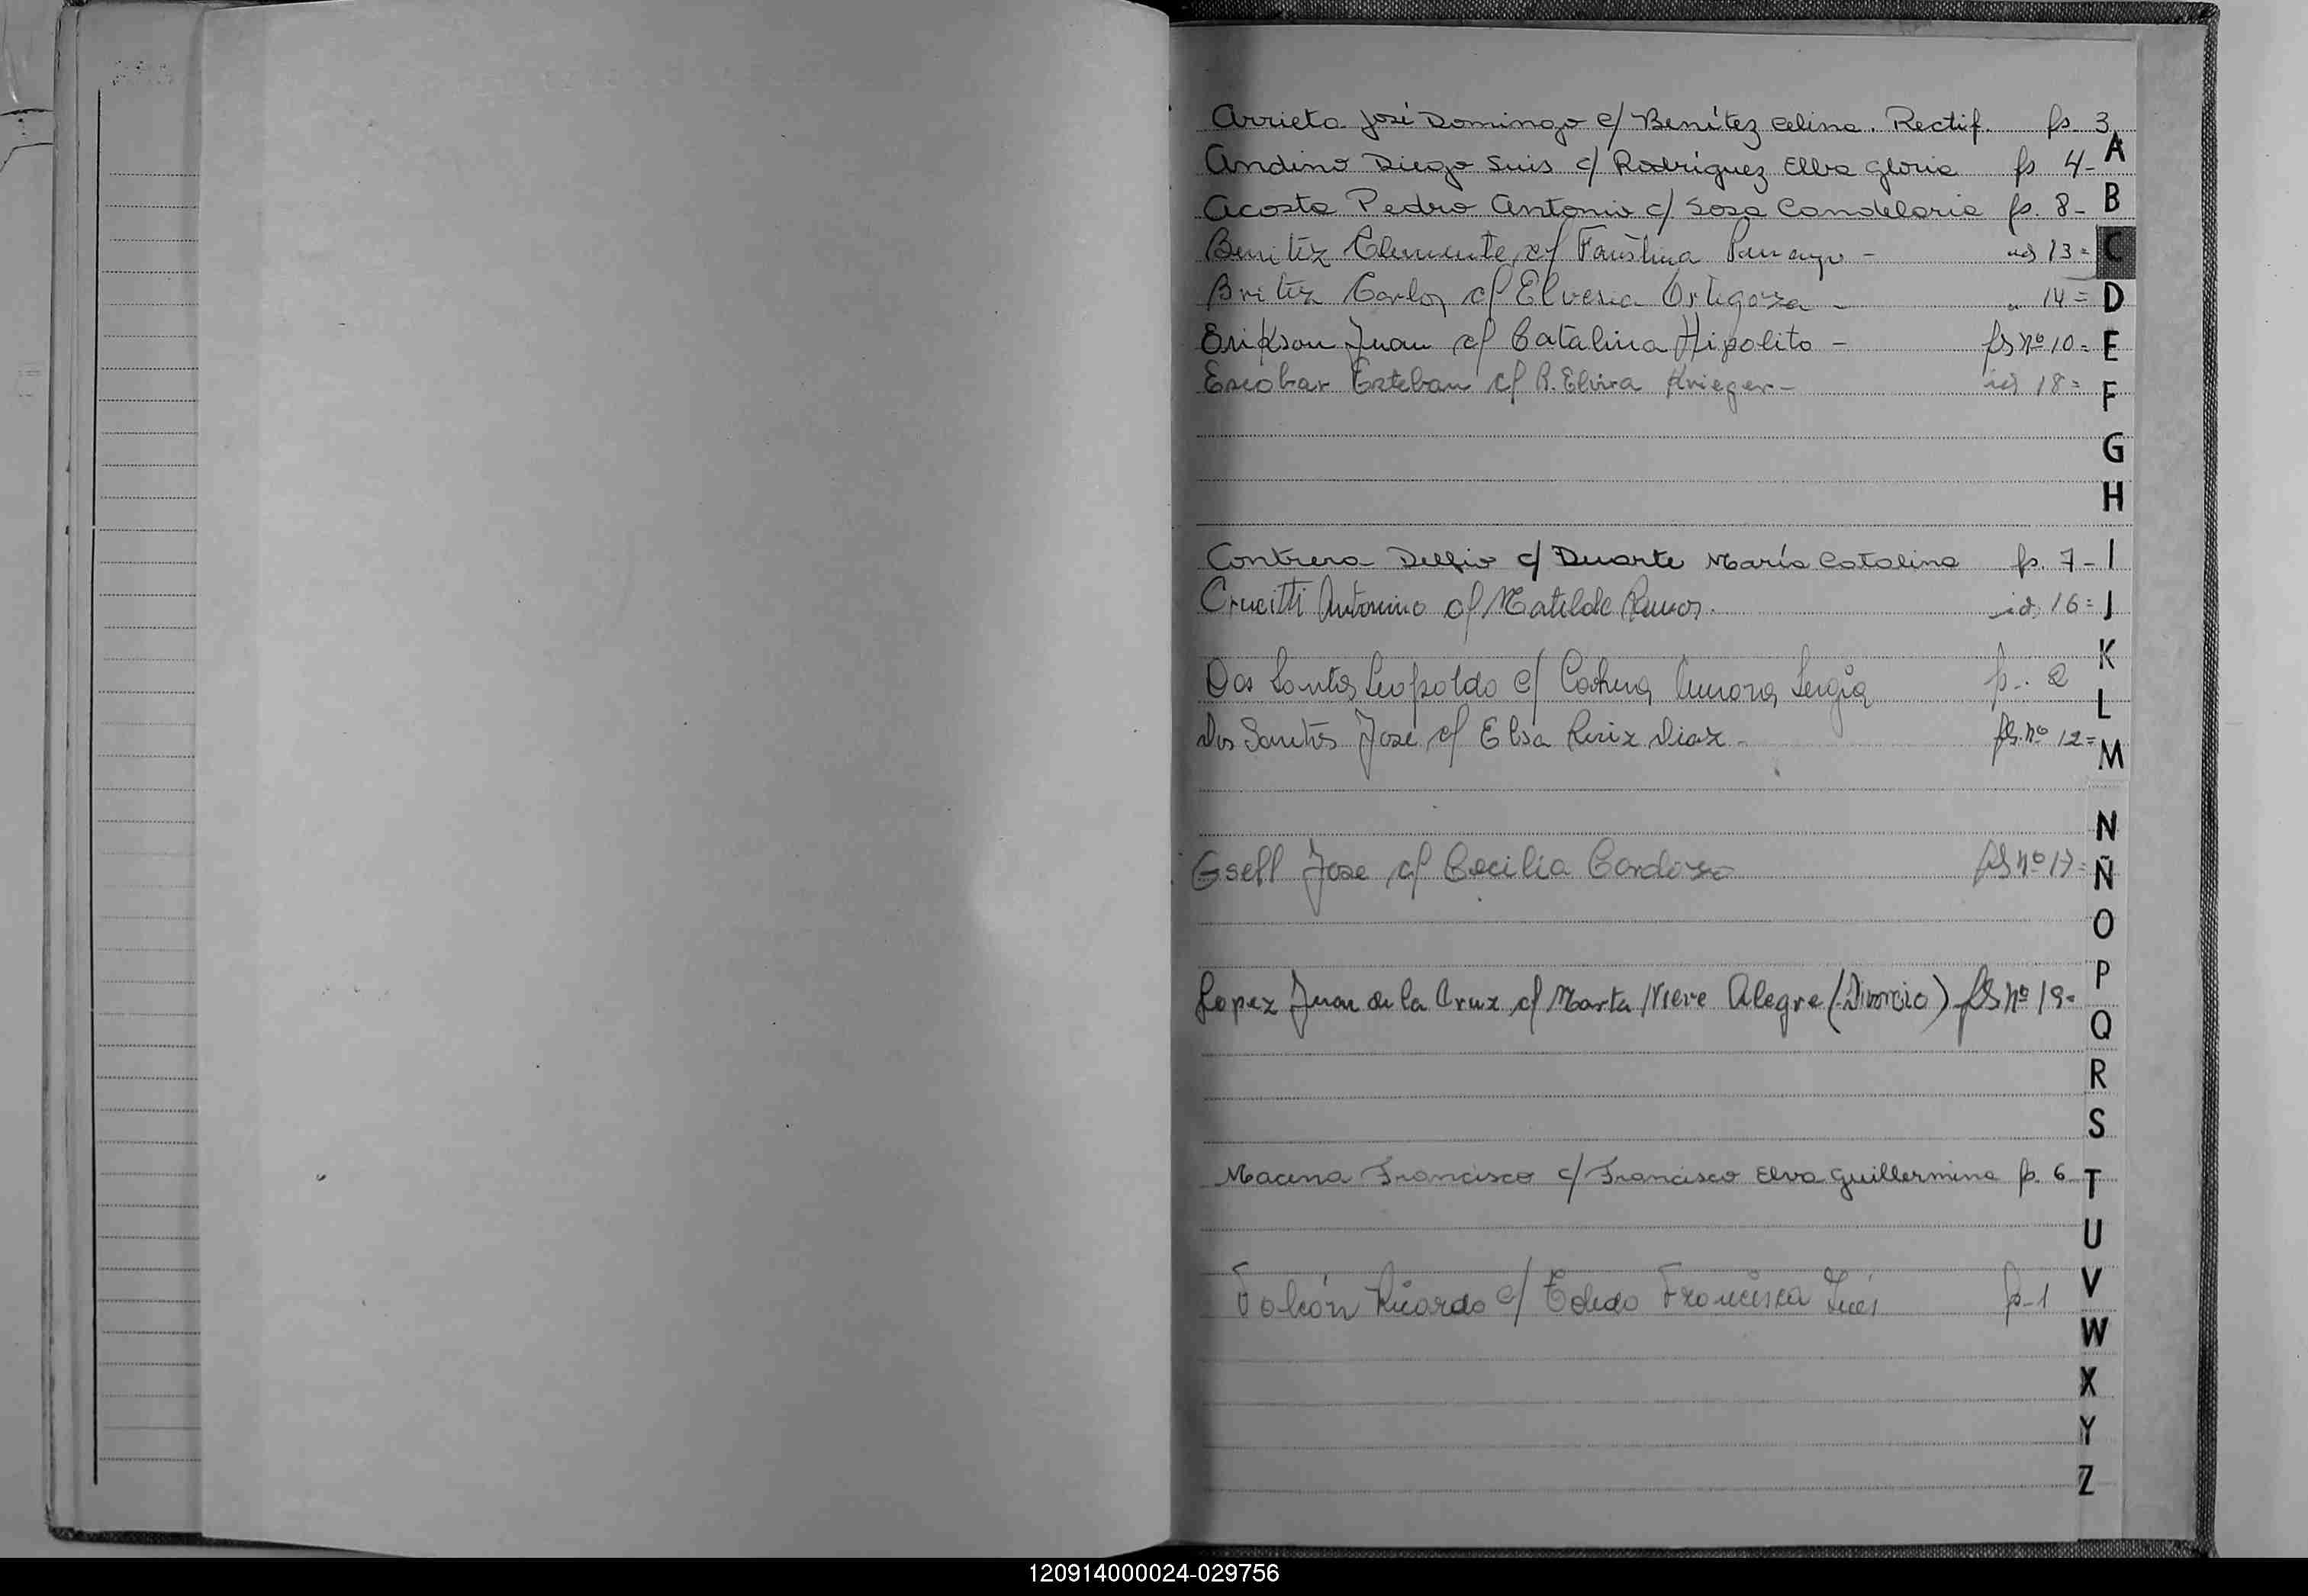 Arrieta José Domingo c/ Benítez Celina. Rectif. fs. 3
A
Andino Diego Luis c/ Rodríguez Elba Gloria fs 4-
B
Acosta Pedro Antonio c/ Sosa Candelaria fs. 8-
C
Benitez Clemente c/ Faustina - id 13=
D
Britez Carlos c/ Elvecia Ortigoza - " 14=
E
Erikson Juan c/ Catalina Hipolito - fs nº 10=
F
Escobar Esteban c/ R. Elvira Krieger- id 18=
G
H
Contrera Delfio c/ Duarte María Catalina fs. 7-
I
Crucitti Antonino c/ Matilde Ramos. id 16=
J
K
Dos Santos Leopoldo c/ Aurora Sergia fs. 2
L
Dos Santos Jose c/ Elsa Ruiz Diaz- fs. nº 12=
M
N
Gsell Jose c/ Cecilia Cardozo fs nº 17=
Ñ
O
P
Lopez Juan de la Cruz c/ Marta Nieve Alegre (Divorcio) fs nº 19=
Q
R
S
Macena Francisco c/ Francisco Elva Guillermina fs. 6
T
U
V
Falcón Ricardo c/ Toledo Francisca Inés fs-1
W
X
Y
Z
120914000024-029756